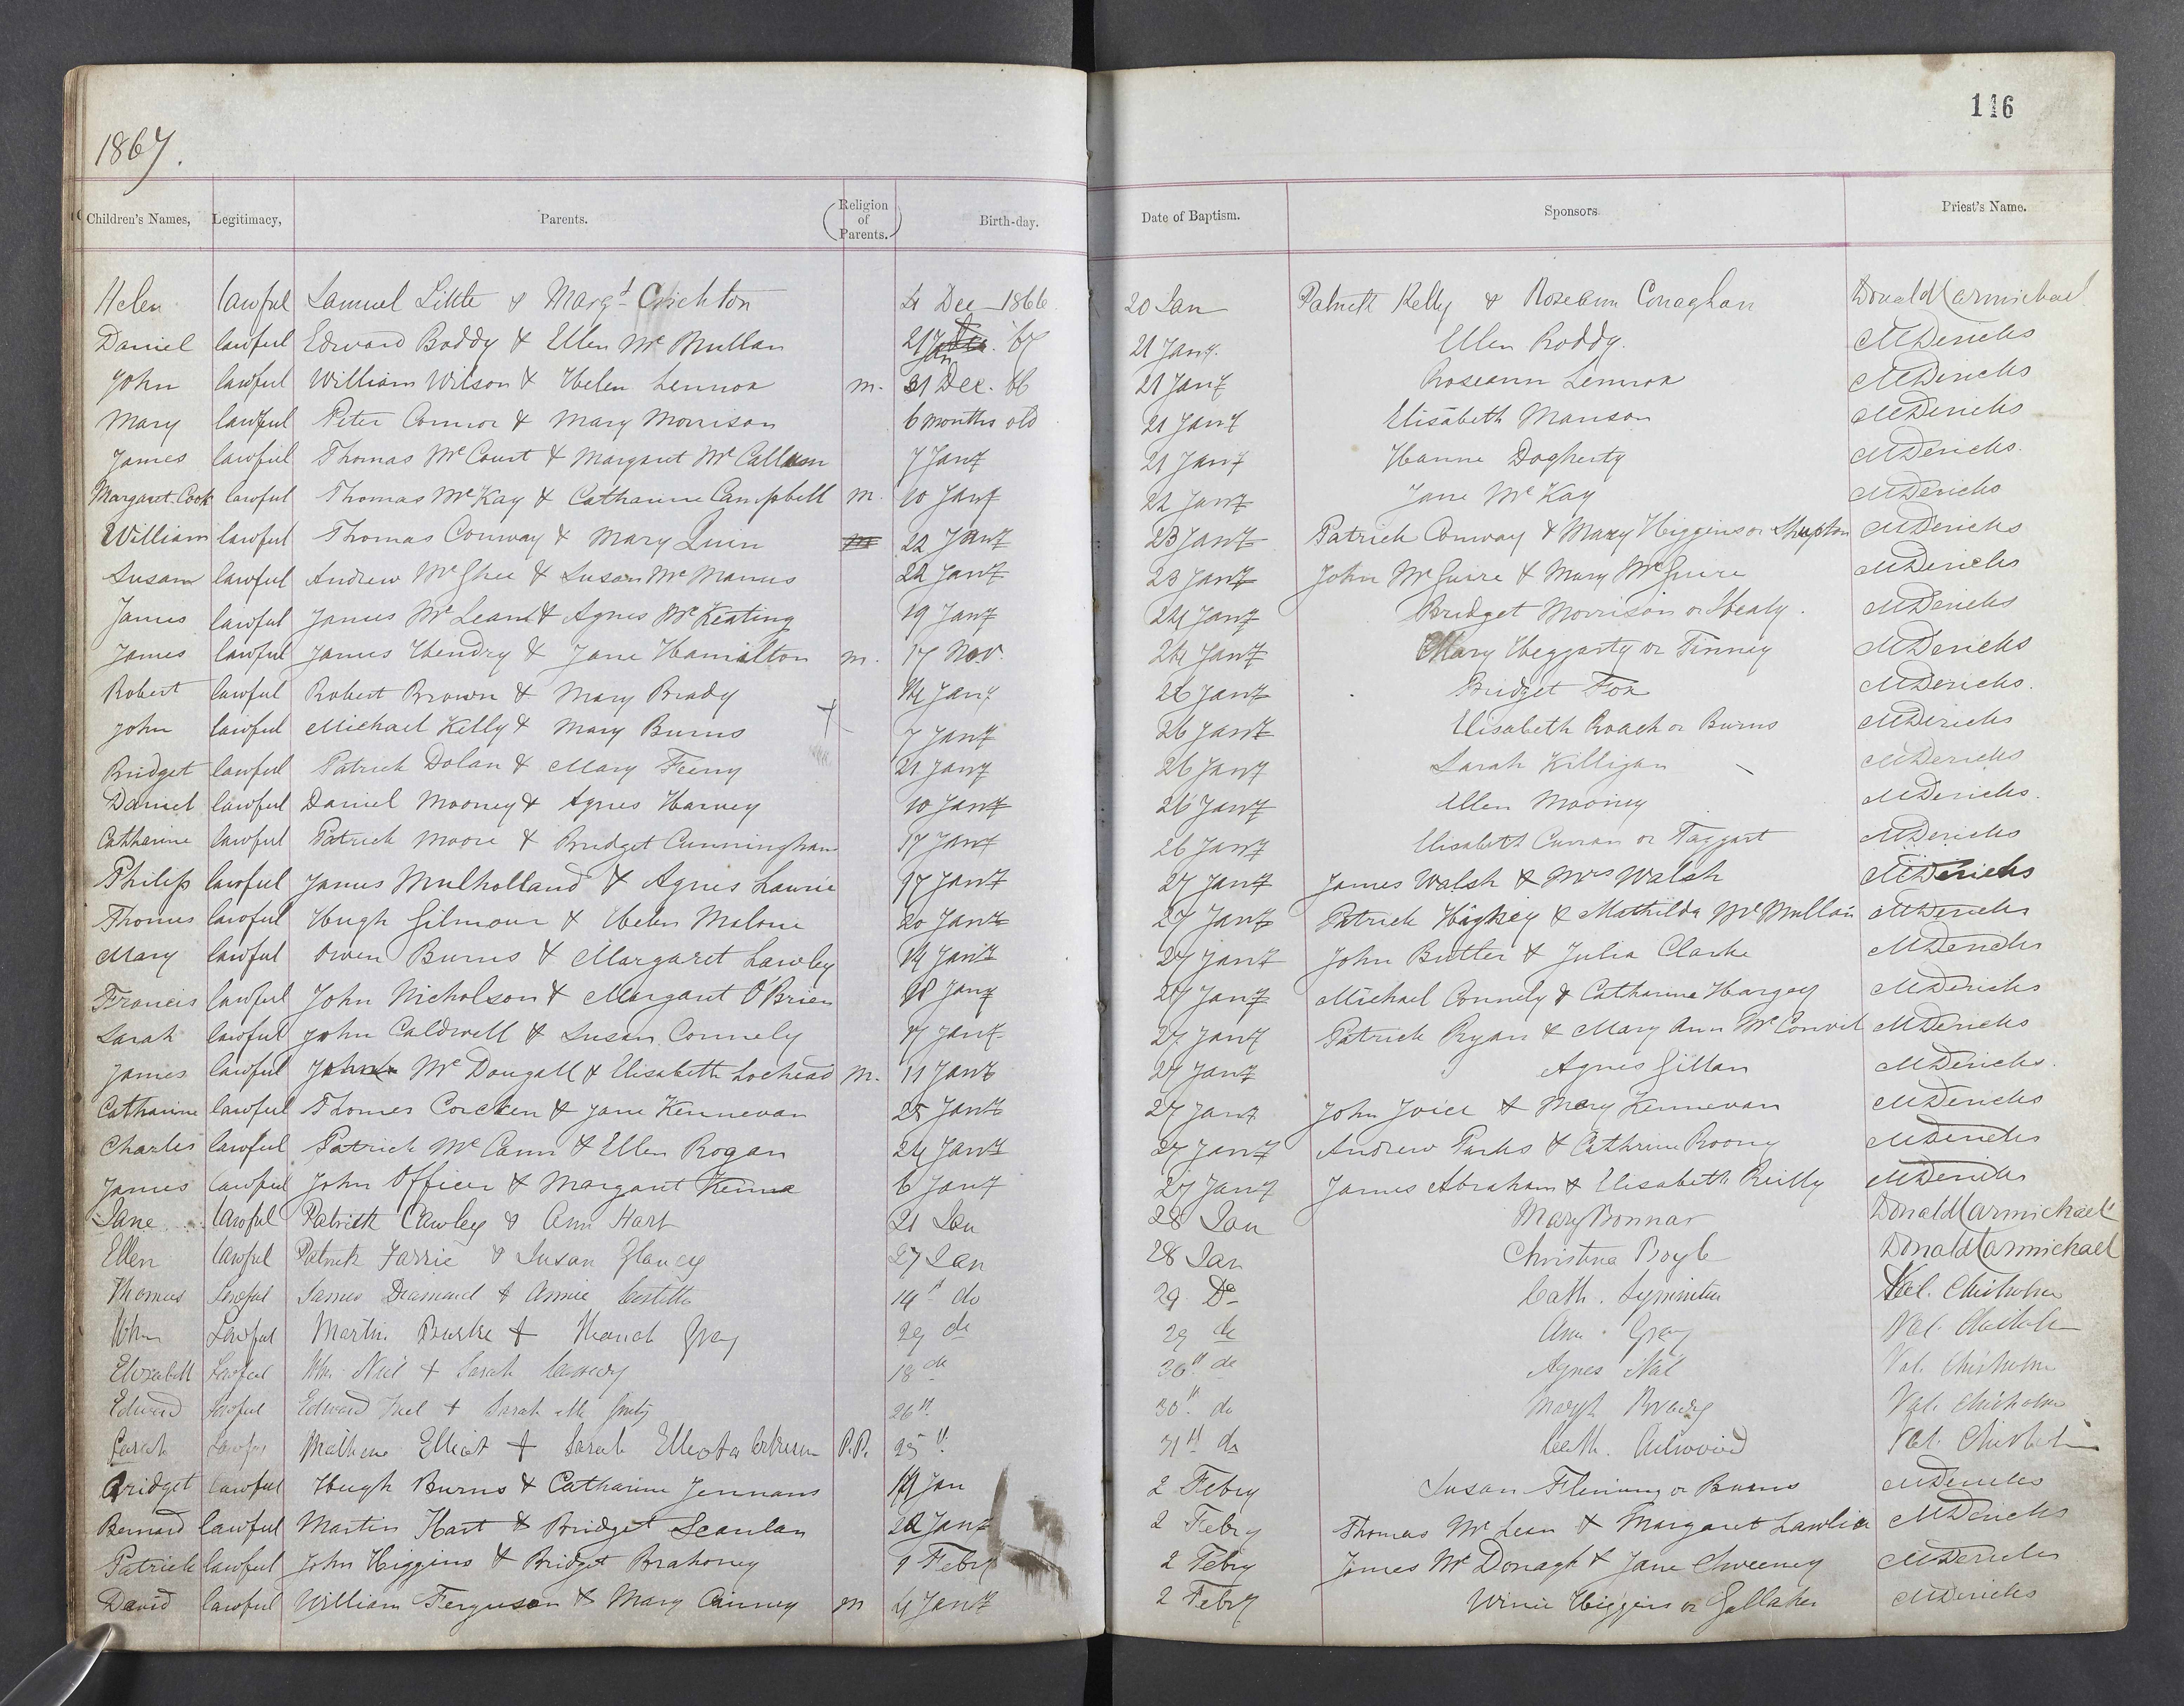 116
1867.
Children's Names, Legitimacy, Parents. (Religion of Parents.) Birth-day. Date of Baptism. Sponsors. Priest's Name.
Helen lawful Samuel Little & Margt Crichton 4 Dec 1866 20 Jan Patrick Kelly & Roseann Conaghan Donald Carmichael
Daniel lawful Edward Boddy & Ellen Mc Mullan 21 Jan. '67 21 Jany. Ellen Roddy. MDericks
John lawful William Wilson & Helen Lennox m. 31 Dec. 66 21 Jany Roseann Lennox MDericks
Mary lawful Peter Connor & Mary Morrison 6 months old 21 Jany Elisabeth Manson MDericks
James lawful Thomas Mc Court & Margaret Mc Callum 7 Jany 21 Jany Hanne Dogherty MDericks.
Margaret Cook lawful Thomas Mc Kay & Catharine Campbell m. 10 Jany 22 Jany Jane Mc Kay MDericks
William lawful Thomas Conway & Mary Quin m 22 Jany 23 Jany Patrick Conway & Mary Higgins or MDericks
Susan lawful Andrew Mc Ghee & Susan Mc Manus 22 Jany 23 Jany John Mc Guire & Mary Mc Guire MDericks
James lawful James Mc Lean & Agnes Mc Keating 19 Jany 24 Jany Bridget Morrison or Healy. MDericks
James lawful James Hendry & Jane Hamilton m. 17 Nov. 24 Jany Mary Heggarty or Finney MDericks
Robert lawful Robert Brown & Mary Brady 14 Jany 26 Jany Bridget Fox MDericks.
John lawful Michael Kelly & Mary Burns 7 Jany 26 Jany Elisabeth Roach or Burns MDericks
Bridget lawful Patrick Dolan & Mary Feeny 21 Jany 26 Jany Sarah Killigan MDericks
Daniel lawful Daniel Mooney & Agnes Harvey 10 Jany 26 Jany Ellen Mooney MDericks.
Catharine lawful Patrick Moore & Bridget Cunningham 17 Jany 26 Jany Elisabeth Curran or Taggart MDericks
Philip lawful James Mulholland & Agnes Lawrie 17 Jany 27 Jany James Walsh & Mrs Walsh MDericks
Thomas lawful Hugh Gilmour & Helen Malone 20 Jany 27 Jany Patrick Hughey & Mathilda Mc Mullan MDericks
Mary lawful Owen Burns & Margaret Lawley 14 Jany 27 Jany John Butler & Julia Clarke MDericks
Francis lawful John Nicholson & Margaret O'Brien 18 Jany 27 Jany Michael Connely & Catharine Hargey MDericks
Sarah lawful John Caldwell & Susan Connely 17 Jany 27 Jany Patrick Ryan & Mary Ann Mc Convil MDericks
James lawful John Mc Dougall & Elisabeth Lochead m. 11 Jany 27 Jany Agnes Gillan MDericks.
Catharine lawful Thomas Corcken & Jane Kennevan 25 Jany 27 Jany John Joice & Mary Kennevan MDericks
Charles lawful Patrick Mc Cann & Ellen Rogan 24 Jany 27 Jany Andrew Parks & Cathrine Roony MDericks
James lawful John Officer & Margaret 6 Jany 27 Jany James Abraham & Elisabeth Reilly MDericks
Jane lawful Patrick Cawley & Ann Hart 21 Jan 28 Jan Mary Bonnar Donald Carmichael
Ellen lawful Patrick Farrie & Susan Glancy 27 Jan 28 Jan Christina Boyle Donald Carmichael
Thomas Lawful James Diamond & Annie Costello 14th do 29 Do Cath. Val. Chisholm
Lawful Martin Burke & Gray 29 do 29 do Ann Gray Val. Chisholm
Elizabeth Lawful Wm. Neil & Sarah 18 do 30th do Agnes Neil Val. Chisholm
Edward Lawful Edward & Sarah Mc Ginty 26th 30th do Margt Val. Chisholm
Sarah Lawful Elliot & Sarah Elliot or P.P. 25th 31st do Cath. Val. Chisholm
Bridget lawful Hugh Burns & Catharine Jennans 14 Jan 2 Febry Susan Fleming or Burns MDericks
Bernard lawful Martin Hart & Bridget Scanlan 22 Jany 2 Febry Thomas Mc Lean & Margaret Lawlia MDericks
Patrick lawful John Higgins & Bridget Brahoney 1 Febry 2 Febry James Mc Donagh & Jane Sweeney MDericks
David lawful William Ferguson & Mary Cinney m 4 Jany 2 Febry Winie Higgins or Gallaher MDericks